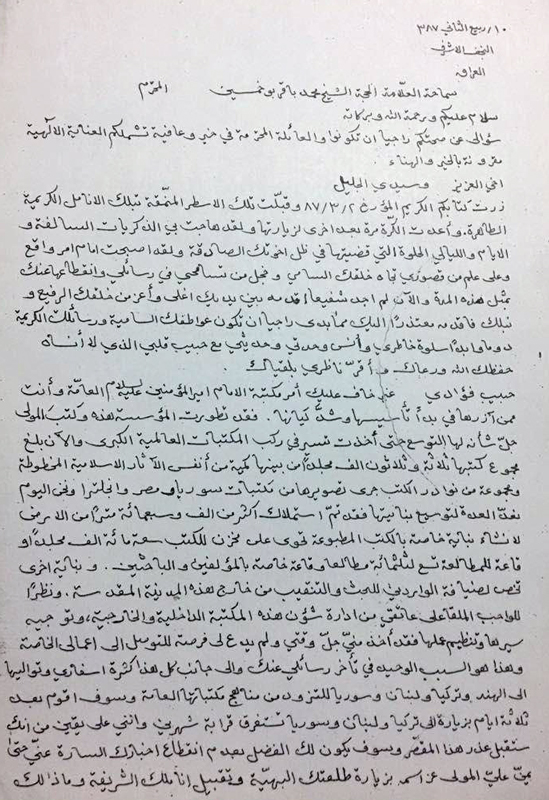 ١٠/ ربيع الثاني ٣٨٧
النجف الاشرف
العراق
سماحة العلّامة الحجة الشيخ محمد باقر بوخمسين المحترم
سلام عليكم ورحمة الله وبركاته
سؤالي عن صحتكم راجيا ان تكونوا والعائلة المحترمة في خير وعافية تشملكم العناية الالهية
مقرونة بالخير والهناء .
اخي العزيز وسيدي الجليل
زرت كتابكم الكريم المؤرخ ٨٧/٣/٢٥ وقبلت تلك الاسطر المنمّقة بتلك الانامل الكريمة
الطاهرة . وأعدت الكرّة مرة بعد اخرى لزيارتها ولقد هاجت بي الذكريات السالفة و
الايام والليالي الحلوة التي قضيتها في ظل اخوتك الصادقة ولقد اصبحت امام امر واقع
وعلى علم من قصوري تجاه خلقك السامي و خجل من تسامحي في رسائلي وانقطاعها عنك
بمثل هذه المدة والآن لم اجد شفيعا اقدمه بين يديك اغلى وأعز من خلقك الرفيع و
نبلك فاقدمه معتذرا اليك مما بدى راجيا ان تكون عواطفك السامية ورسائلك الكريمة
دوما وابدا سلوة خاطري وأنس وحدتي وحديثي مع حبيب قلبي الذي لا أنساه
حفظك الله ورعاك وأقرّ ناظري بلقياك .
حبيب فؤادي غير خاف عليك أمر مكتبة الامام اميرالمؤمنين عليه السلام العامّة وأنت
ممن آزرها في بدأ تأسيسها وشدّ كيانها . فقد تطورت المؤسسة هذه وكتب المولى
جلّ شأنه لها التوسع حتى أخذت تسير في ركب المكتبات العالمية الكبرى والآن بلغ
مجموع كتبها ثلاثة وثلاثون الف مجلداً من بينها كمية من أنفس الآثار الاسلامية المخطوطة
ومجموعة من نوادر الكتب جرى تصويرها من مكتبات سوريا ومصر وانجلترا ونحن اليوم
نعدّ العدة لتوسيع بنايتها فقد تمّ استملاك اكثر من الف وسبعمائة مترا من الارض
لانشاء بناية خاصة بالكتب المطبوعة تحوى على مخزن للكتب سعة مائة الف مجلدا و
قاعة للمطالعة تسع لثلثمائة مطالعا وقاعة خاصة بالمؤلفين والباحثين . وبناية اخرى
تخص لضيافة الواردين للبحث والتنقيب من خارج هذه المدينة المقدسة . ونظرًا
للواجب الملقاة على عاتقي من ادارة شؤون هذه المكتبة الداخلية والخارجية، وتوجيه
سيرها وتنظيم عملها فقد أخذ مني جلّ وقتي ولم يدع لي فرصة للتوصل الى اعمالي الخاصة
وهذا هو السبب الوحيد في تأخر رسائلي عنك والى جانب كل هذا كثرة اسفاري وتواليها
الى الهند وتركيا ولبنان وسوريا للتزود من مناهج مكتباتها العامة وسوف اقوم بعد
ثلاثة ايام بزيارة الى تركيا ولبنان وسوريا تستغرق قرابة شهرين وانني على يقين من انك
ستقبل عذر هذا المقصّر وسوف يكون لك الفضل بعدم انقطاع اخبارك السارة عنّي حتى
يمنّ عليّ المولى عز اسمه بزيارة طلعتك البهيّة وتقبيل اناملك الشريفة وما ذلك